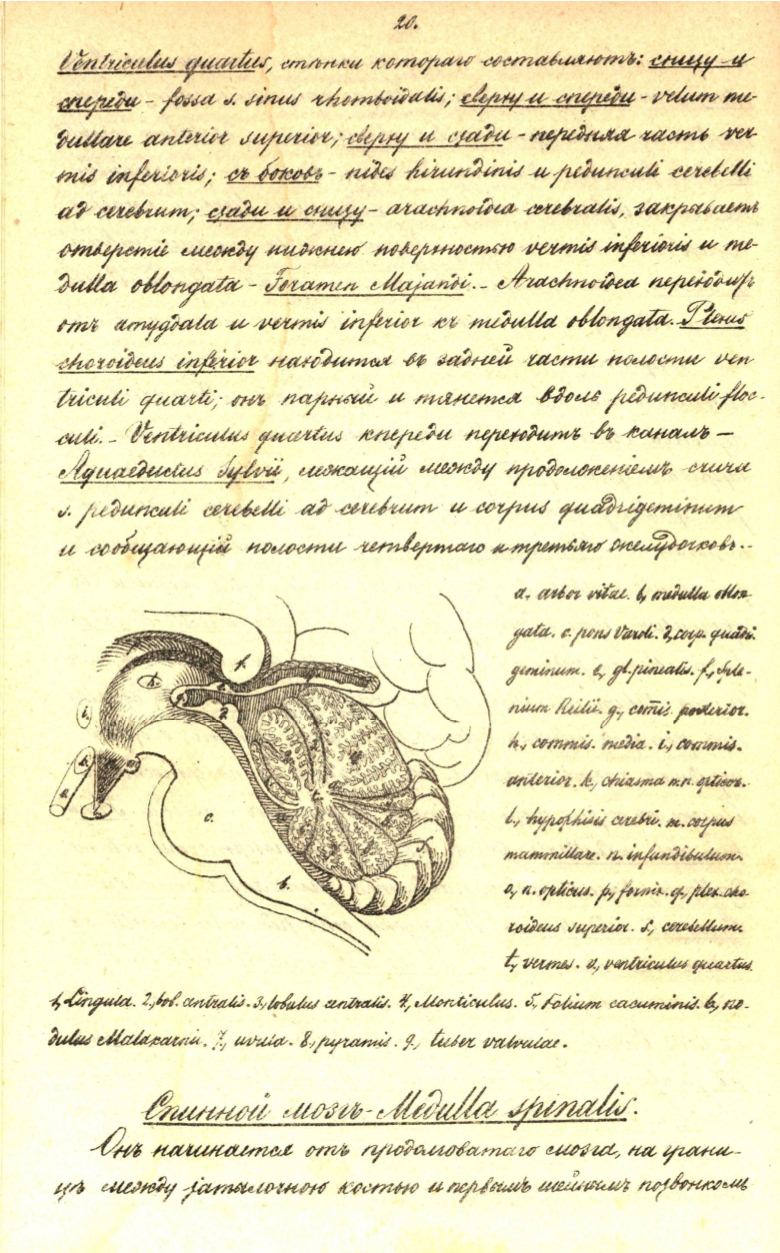 20.
Ventriculus quartus, стѣнки котораго составляютъ: снизу и
спереди - fossa s. sinus rhomboidalis; сверху и спереди - velum me-
dullare anterior superior; сверху и сзади - передняя часть ver-
mis inferioris; съ боковъ - nides hirundinis и pedunculi cerebelli
ad cerebrum; сзади и снизу - arachnoidea cerebralis, закрываетъ
отверстіе между нижнею поверхностью vermis inferioris и me-
dulla oblongata - Foramen Majandi. - Arachnoidea переходитъ
отъ amygdala и vermis inferior къ medulla oblongata. Plexus
choroideus inferior находится въ задней части полости ven
triculi quarti; онъ парный и тянется вдоль pedunculi floc-
culi. - Ventriculus quartus кпереди переходитъ въ каналъ -
Aquaeductus Sylvii, лежащій между продолженіемъ crura
s. pedunculi cerebelli ad cerebrum и corpus quadrigeminum
и сообщающій полости четвертаго и третьяго желудочковъ. -
a, arbor vitae. b, medulla oblon-
gata. c. pons Varoli. d, corp. quadri
geminum. e, gl. pinealis. f, sple-
nium Reilii. g, comis. posterior.
h, commis. media. i, commis.
anterior. k, chiasma n.n. opticor.
l, hypophisis cerebri. m. corpus
mammillare. n. infundibulum.
o, n. opticus. p, fornix. q, plex. cho-
roideus superior. s, cerebellum.
t, vermes. u, ventriculus quartus.
1, Lingula. 2, lob. centralis. 3, lobulus centralis. 4, Monticulus. 5, Folium cacuminis. 6, no-
dulus Malakarnii. 7, uvula. 8, pyramis. 9, tuber valvulae.
Спинной мозгъ - Medulla spinalis.
Онъ начинается отъ продолговатаго мозга, на грани-
цѣ между затылочною костью и первымъ шейнымъ позвонкомъ